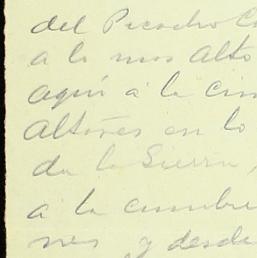 del Picacho C
a lo mas alto
aquí á la cim
Altares en lo
da la Sierra,
á la cumbre
nes y desde